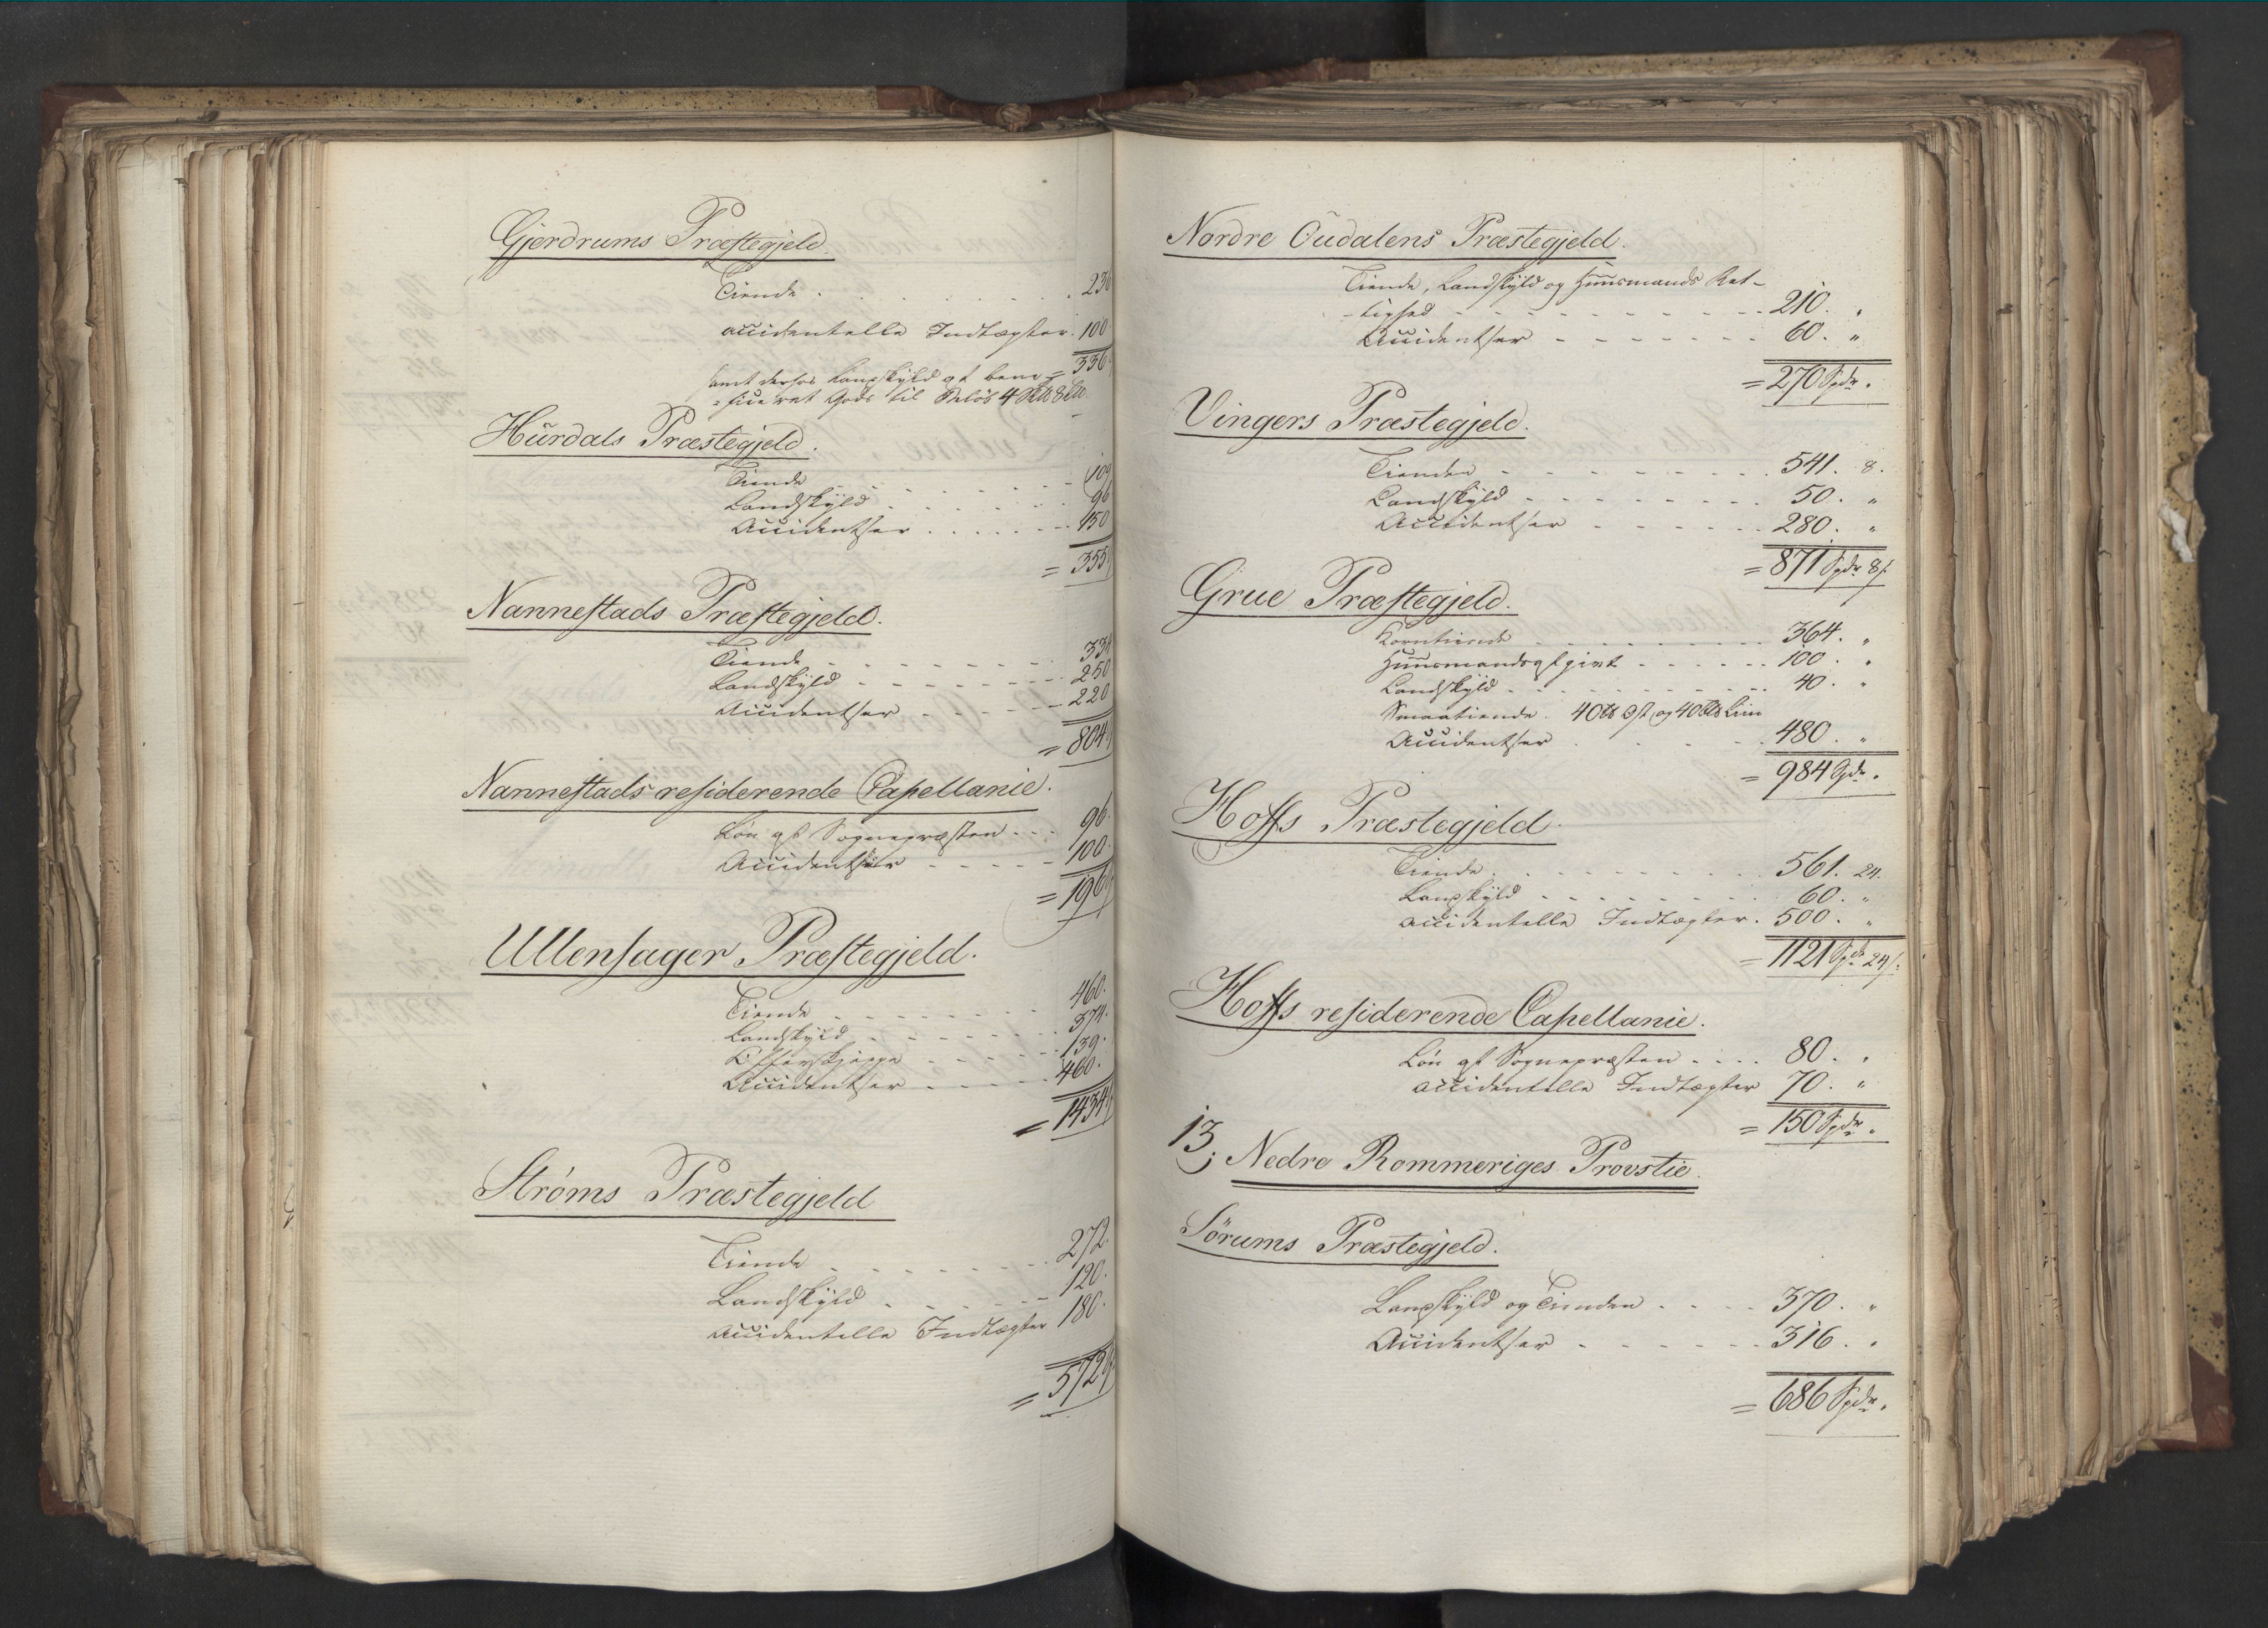 Gjerdrums Præstegjeld.
Tiende . 236
accidentelle Indtægter. 100.
= 336
samt derhos Landskyld af bene=
=ficeret Gods til Beløb 4
Hurdals Præstegjeld.
Tiende 109
Landskyld 96
Accidentser 150
= 355
Nannestads Præstegjeld.
Tiende 334
Landskyld 250
Accidentser 220
= 804
Nannestads residerende Capellanie.
Løn af Sognepræsten 96.
Accidentser 100.
= 196
Ullensager Præstegjeld.
Tiende 460.
Landskyld 374.
Offerskjæppe 139.
Accidentser 460.
= 1434
Strøms Præstegjeld
Tiende 272.
Landskyld 120.
Accidentelle Indtægter 180.
= 572
Nordre Oudalens Præstegjeld.
Tiende, Landskyld og Huusmands Ret-
-tighed 210. "
Accidentser 60. "
= 270 Spdr.
Vingers Præstegjeld.
Tienden 541. 8.
Landskyld 50. "
Accidentser 280. "
= 871 Spdr 8
Grue Præstegjeld.
Korntiende 364. "
Huusmandsafgivt 100. "
Landskyld 40. "
Smaatiende. 40 og 40
Accidentser 480. "
= 984 Spdr.
Hoffs Præstegjeld.
Tiende 561. 24.
Landskyld 60. "
accidentelle Indtægter. 500. "
= 1121 Spdr 24
Hoffs residerende Capellanie.
Løn af Sognepræsten 80. "
accidentelle Indtægter 70. "
= 150 Spdr.
13; Nedre Rommeriges Provstie.
Sörums Præstegjeld.
Landskyld og Tienden 370. "
Accidentser 316. "
= 686 Spdr.